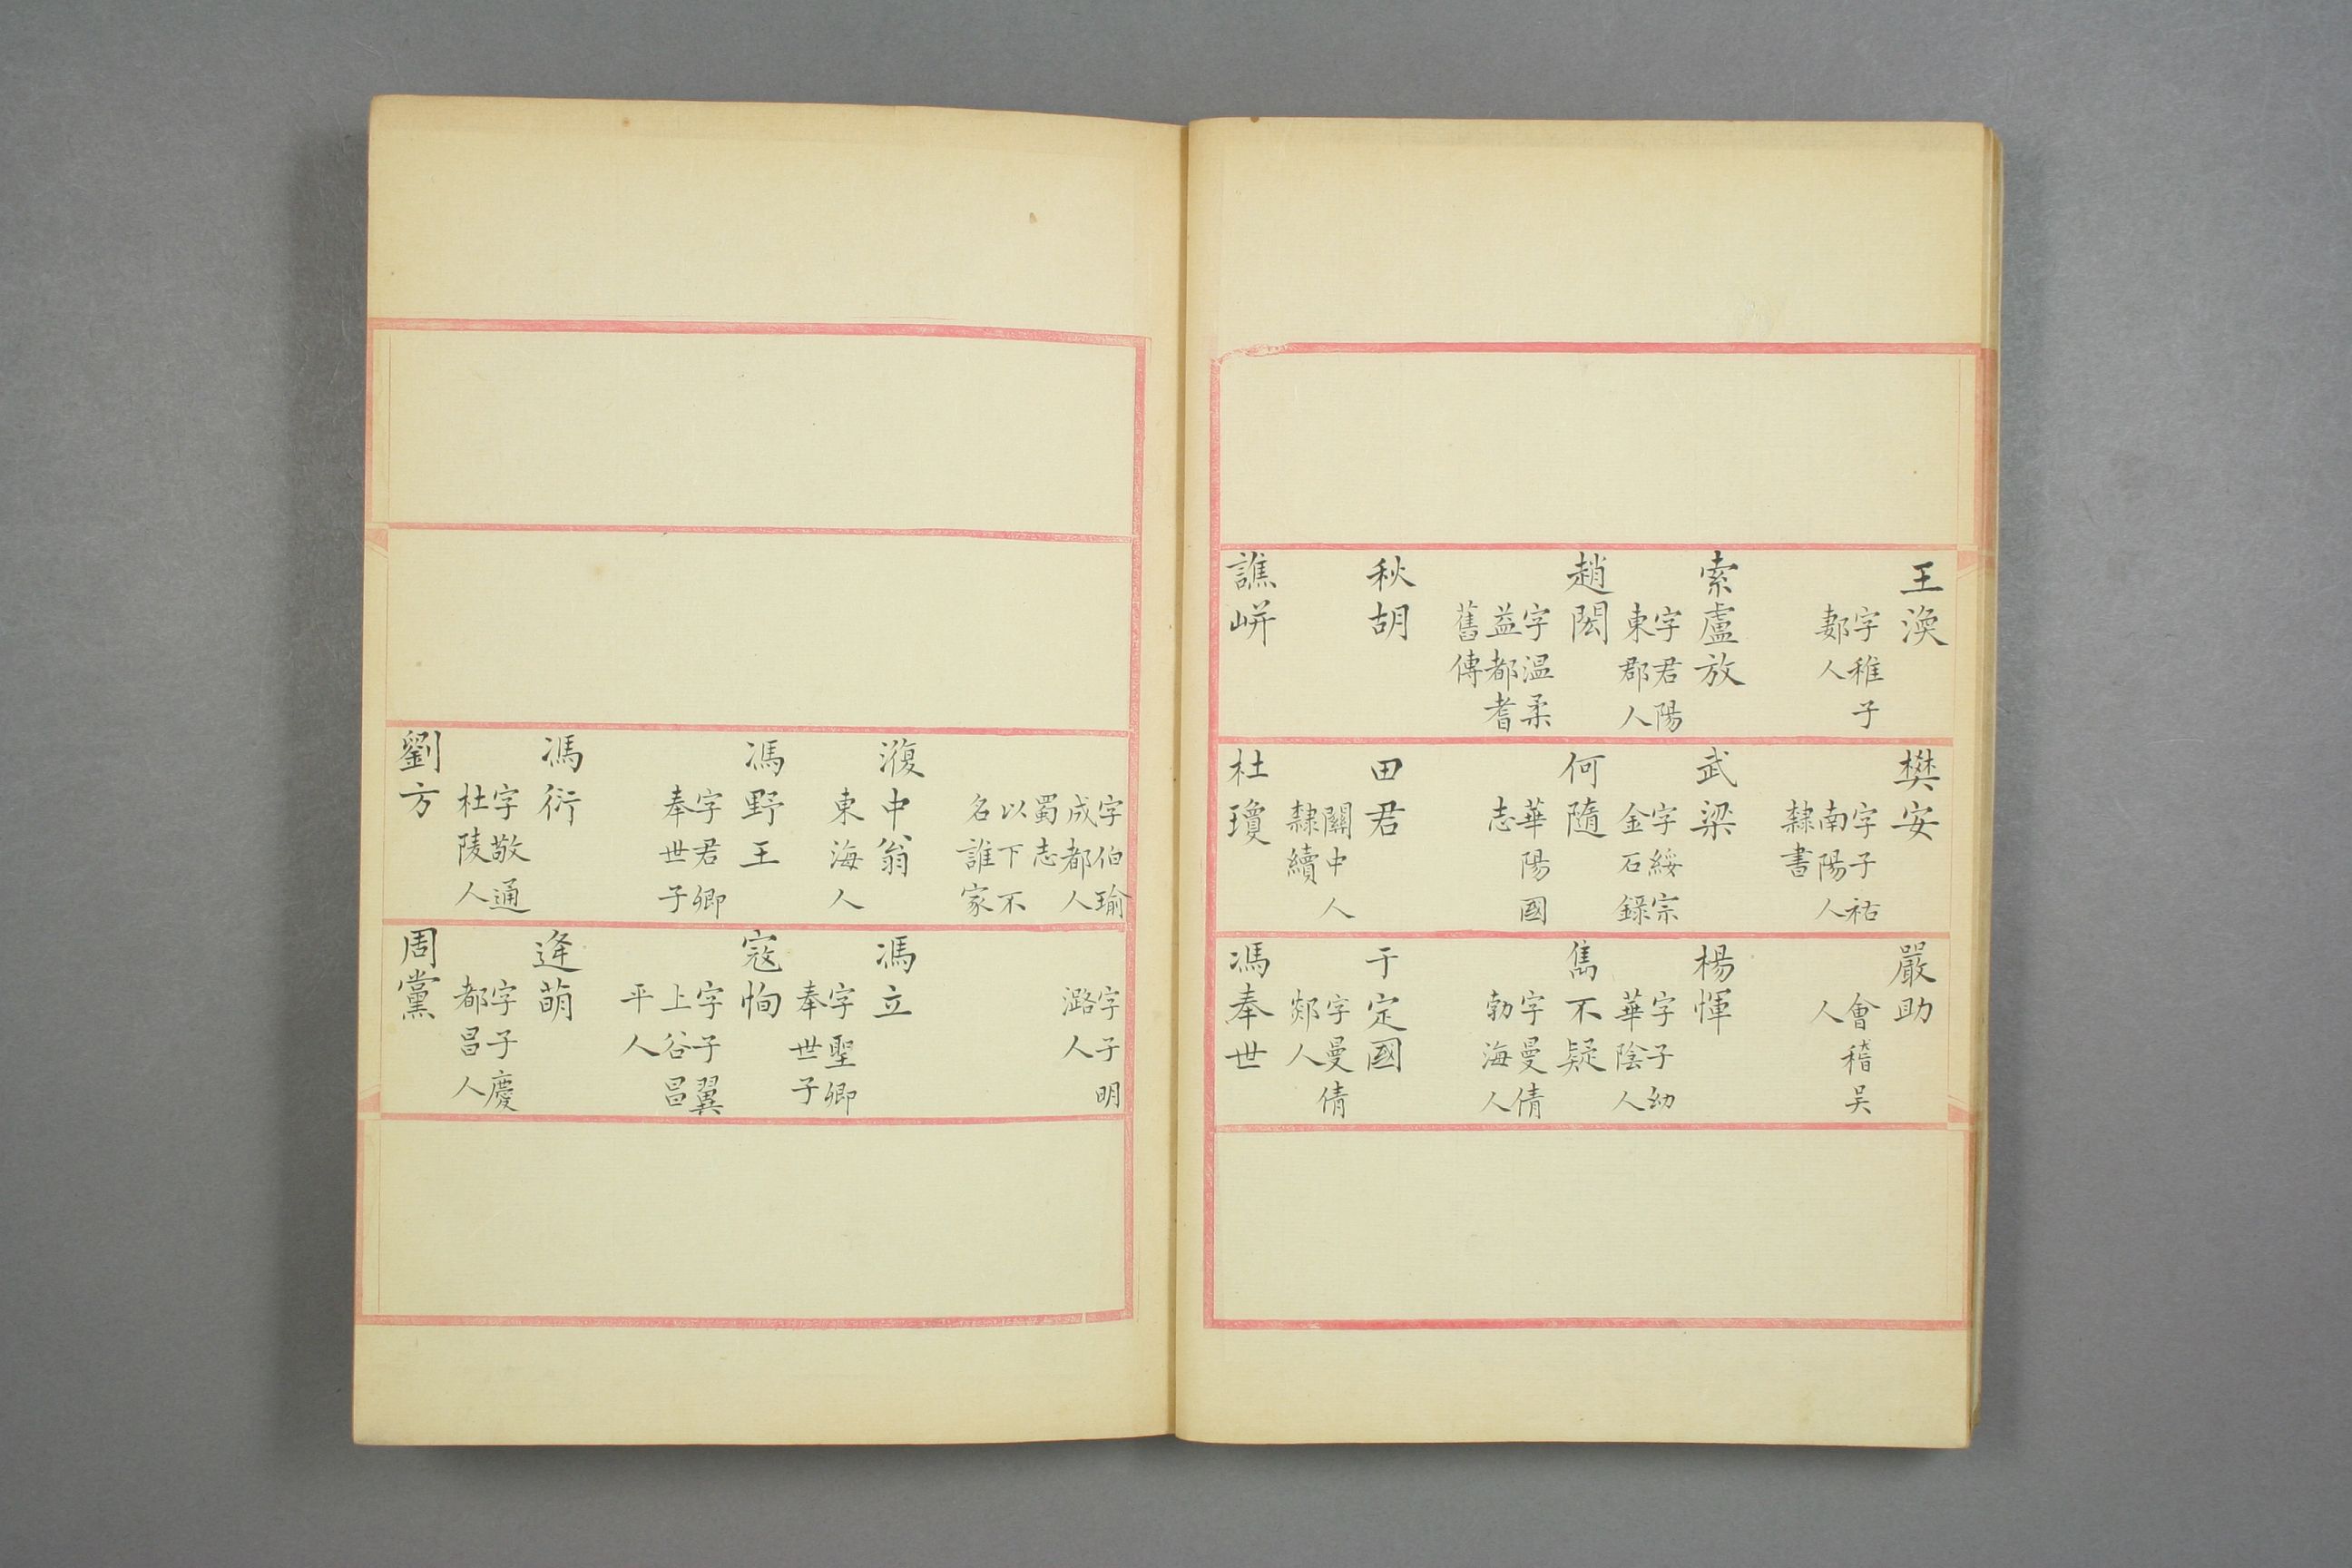 王渙
字稚子
郪人
索盧放
字君陽
東郡人
趙閎
字溫柔
益都耆
舊傳
秋胡
譙𡺸
樊安
字子祐
南陽人
隸書
武梁
字綏宗
金石錄
何隨
華陽國
志
田君
關中人
隸續
杜瓊
嚴助
會稽吳
人
楊惲
字子幼
華陰人
雋不疑
字曼倩
勃海人
于定國
字曼倩
郯人
馮奉世
字伯瑜
成都人
蜀志
以下不
名誰家
澓中翁
東海人
馮野王
字君卿
奉世子
馮衍
字敬通
杜陵人
劉方
字子明
潞人
馮立
字聖卿
奉世子
寇恂
字子翼
上谷昌
平人
逄萌
字子慶
都昌人
周黨